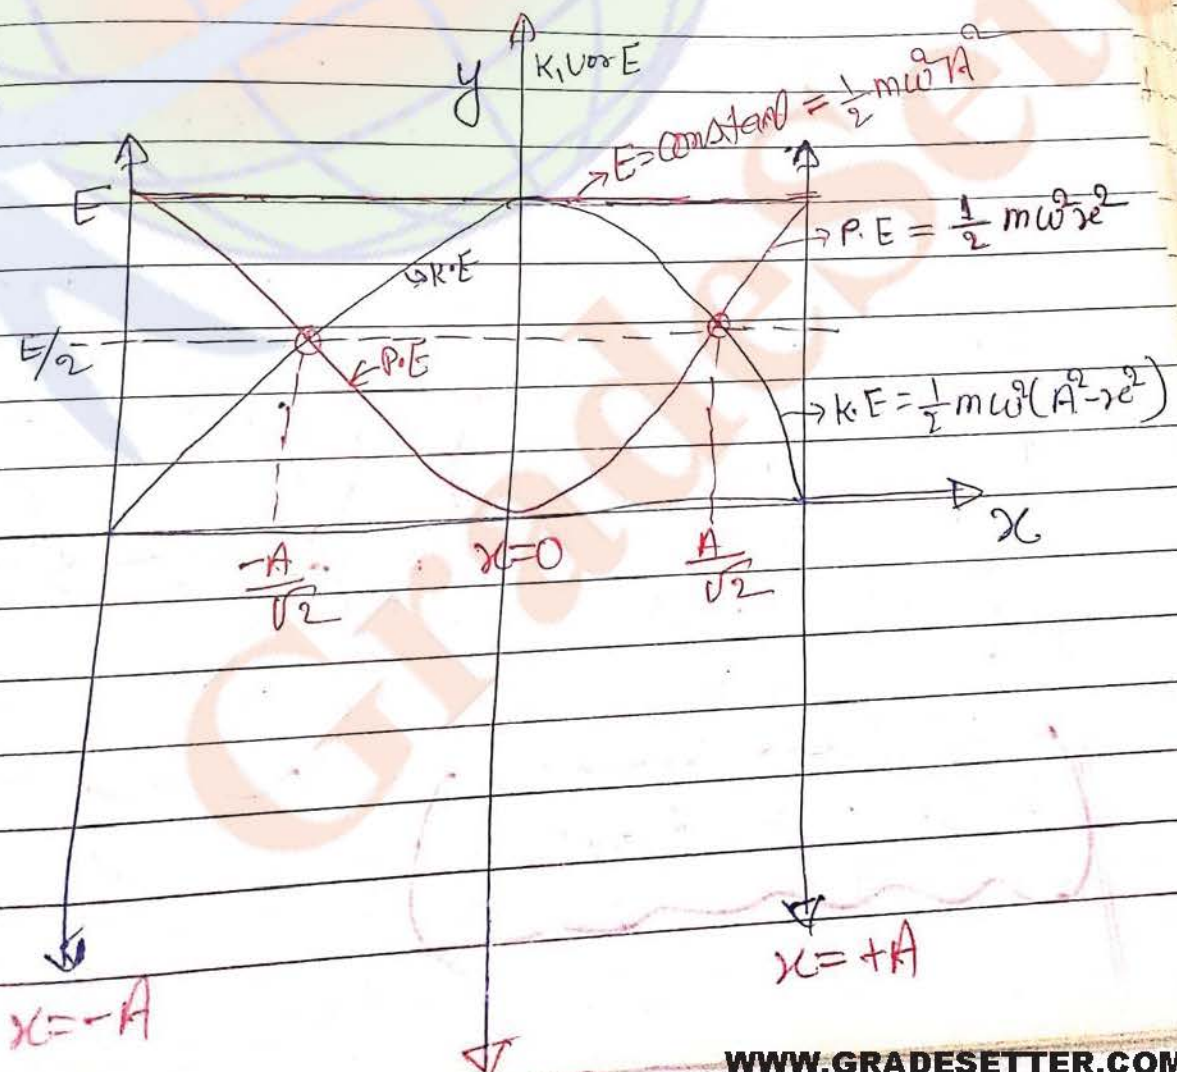 y K, U or E
E = constant = 1/2 mω²A²
E
→ P.E = 1/2 mω²x²
↳ K.E
E/2
P.E
→ K.E = 1/2 mω²(A²-x²)
x
-A/√2 x=0 A/√2
x=+A
x=-A
GradeSet
WWW.GRADESETTER.COM